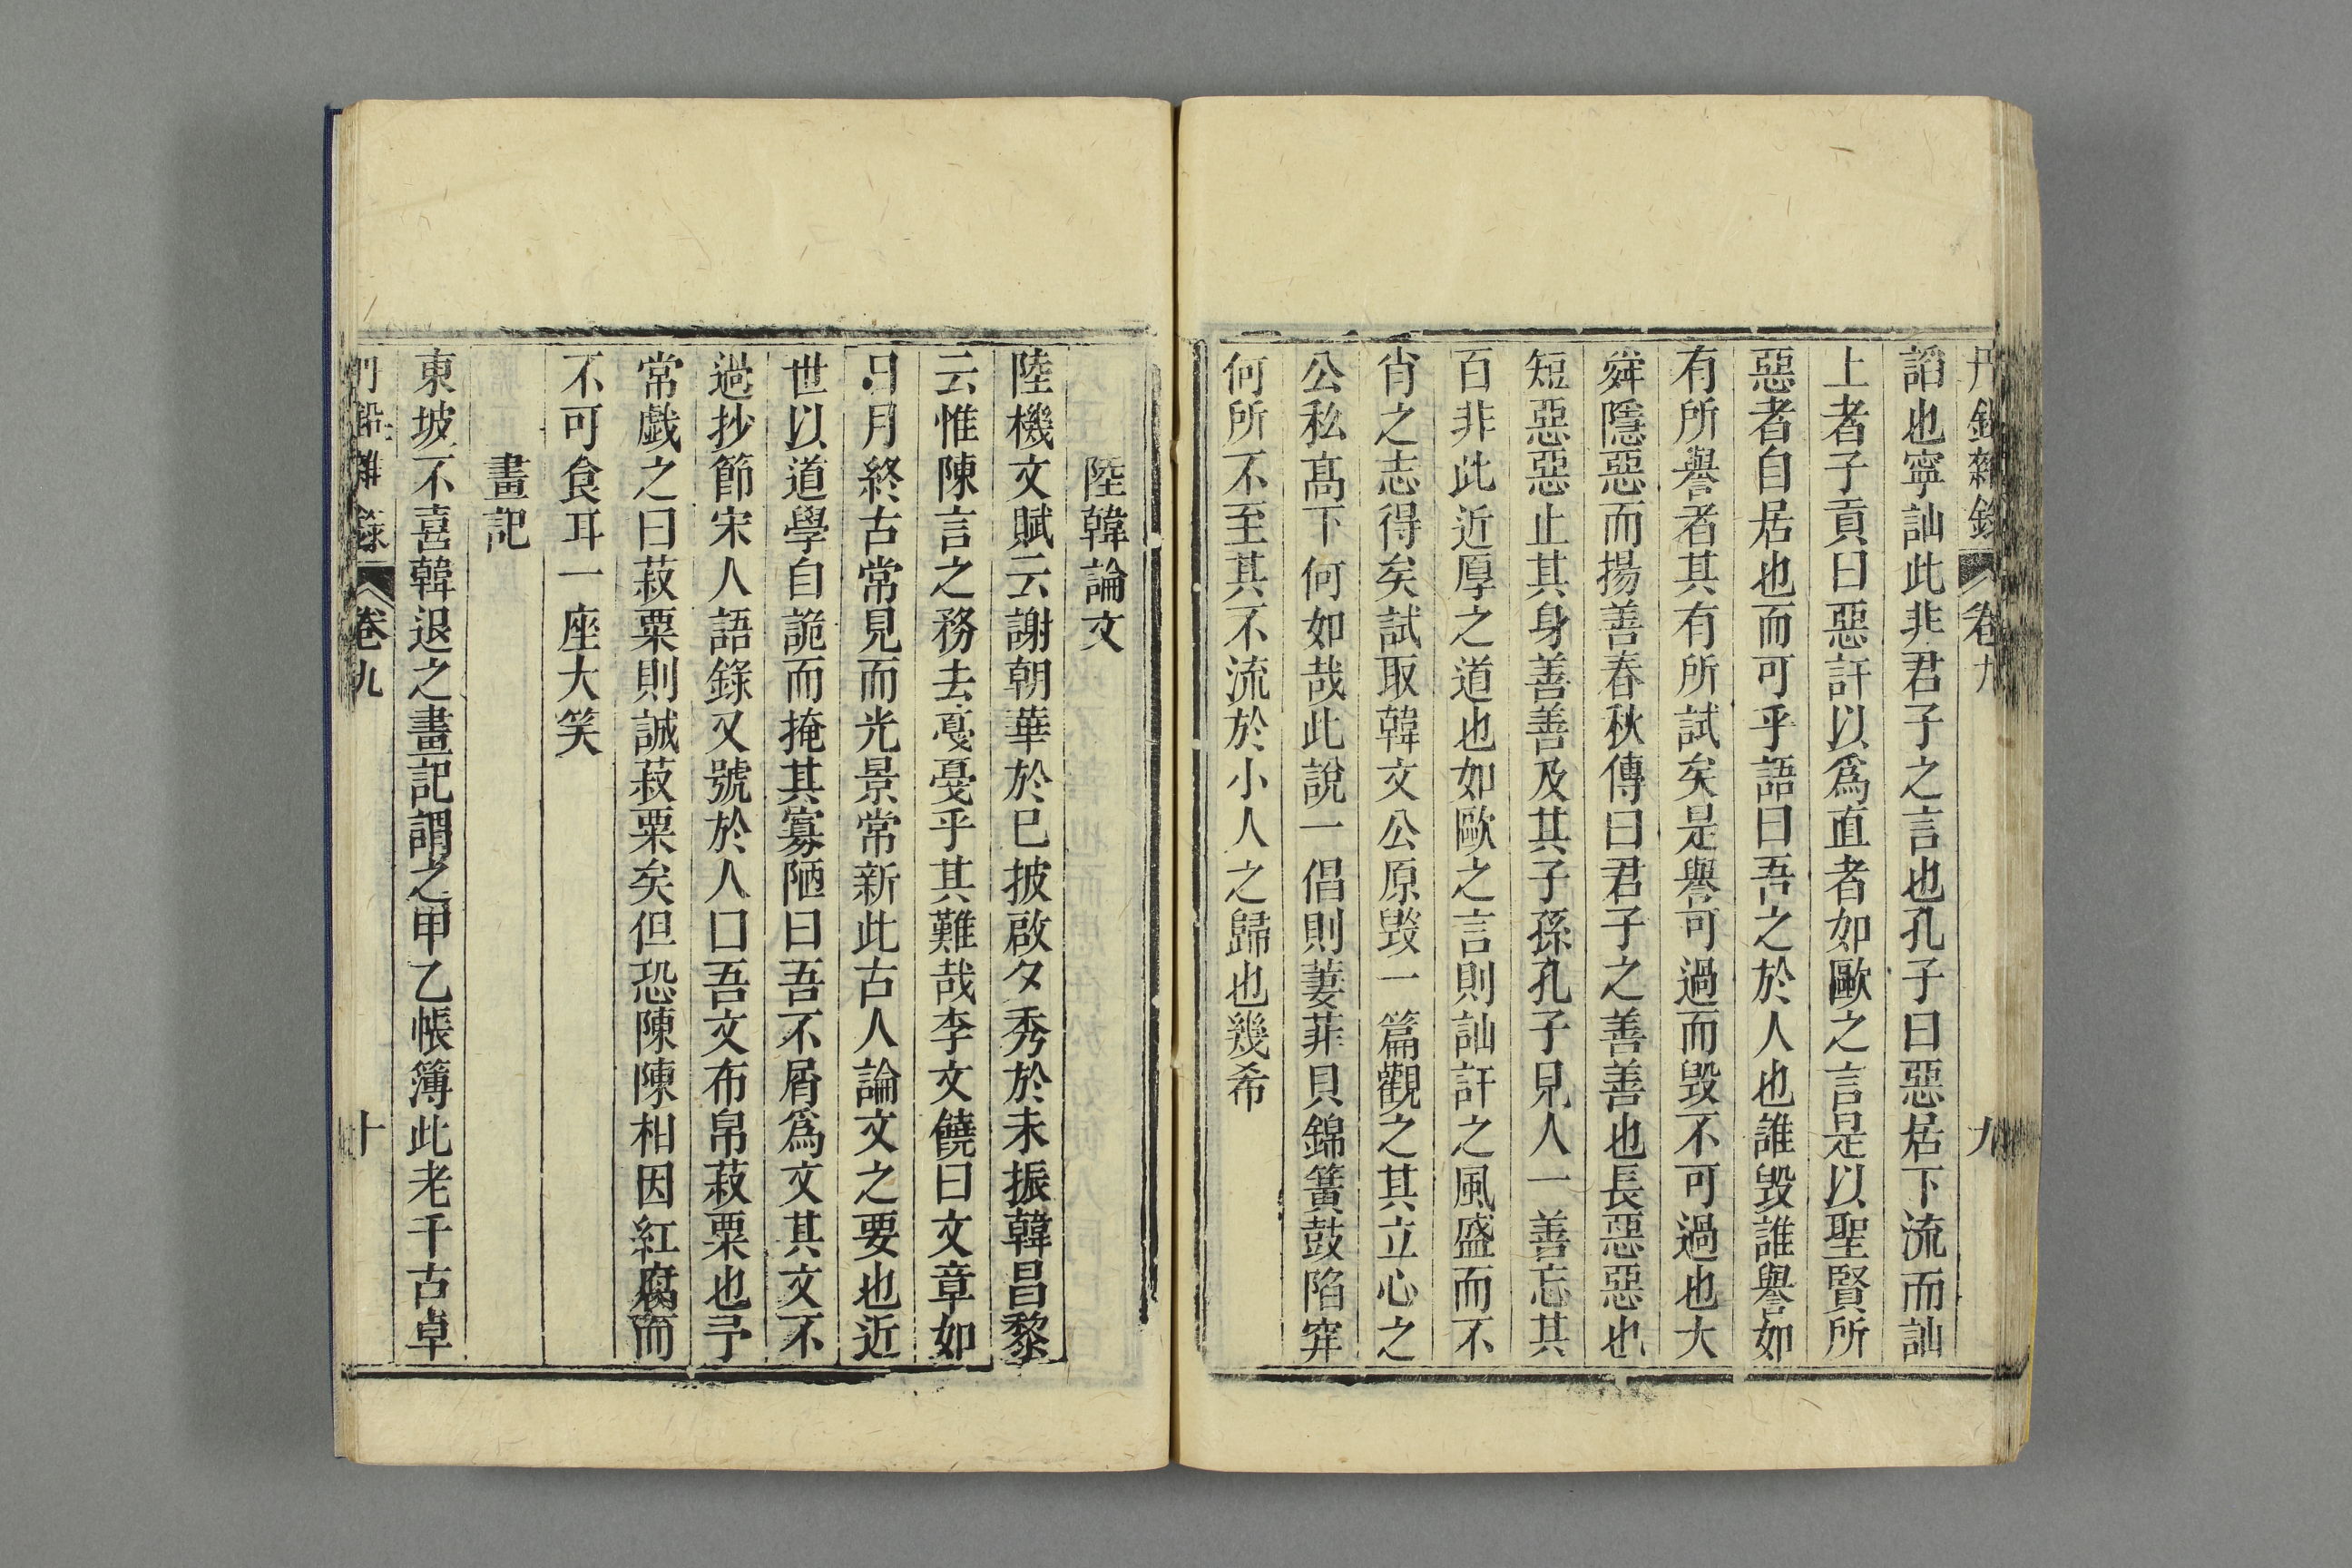 丹鉛雜錄 卷九 九
謟也寧訕此非君子之言也孔子曰惡居下流而訕
上者子貢曰惡訐以爲直者如歐之言是以聖賢所
惡者自居也而可乎語曰吾之於人也誰毀誰譽如
有所譽者其有所試矣是譽可過而毀不可過也大
舜隱惡而揚善春秋傳曰君子之善善也長惡惡也
短惡惡止其身善善及其子孫孔子見人一善忘其
百非此近厚之道也如歐之言則訕訐之風盛而不
肖之志得矣試取韓文公原毀一篇觀之其立心之
公私高下何如哉此說一倡則萋菲貝錦簧鼓陷穽
何所不至其不流於小人之歸也幾希
陸韓論文
陸機文賦云謝朝華於已披啟夕秀於未振韓昌黎
云惟陳言之務去戞戞乎其難哉李文饒曰文章如
日月終古常見而光景常新此古人論文之要也近
世以道學自詭而掩其寡陋曰吾不屑爲文其文不
過抄節宋人語錄又號於人曰吾文布帛菽粟也予
常戲之曰菽粟則誠菽粟矣但恐陳陳相因紅腐而
不可食耳一座大笑
畫記
東坡不喜韓退之畫記謂之甲乙帳簿此老千古卓
丹鉛雜錄 卷九 十